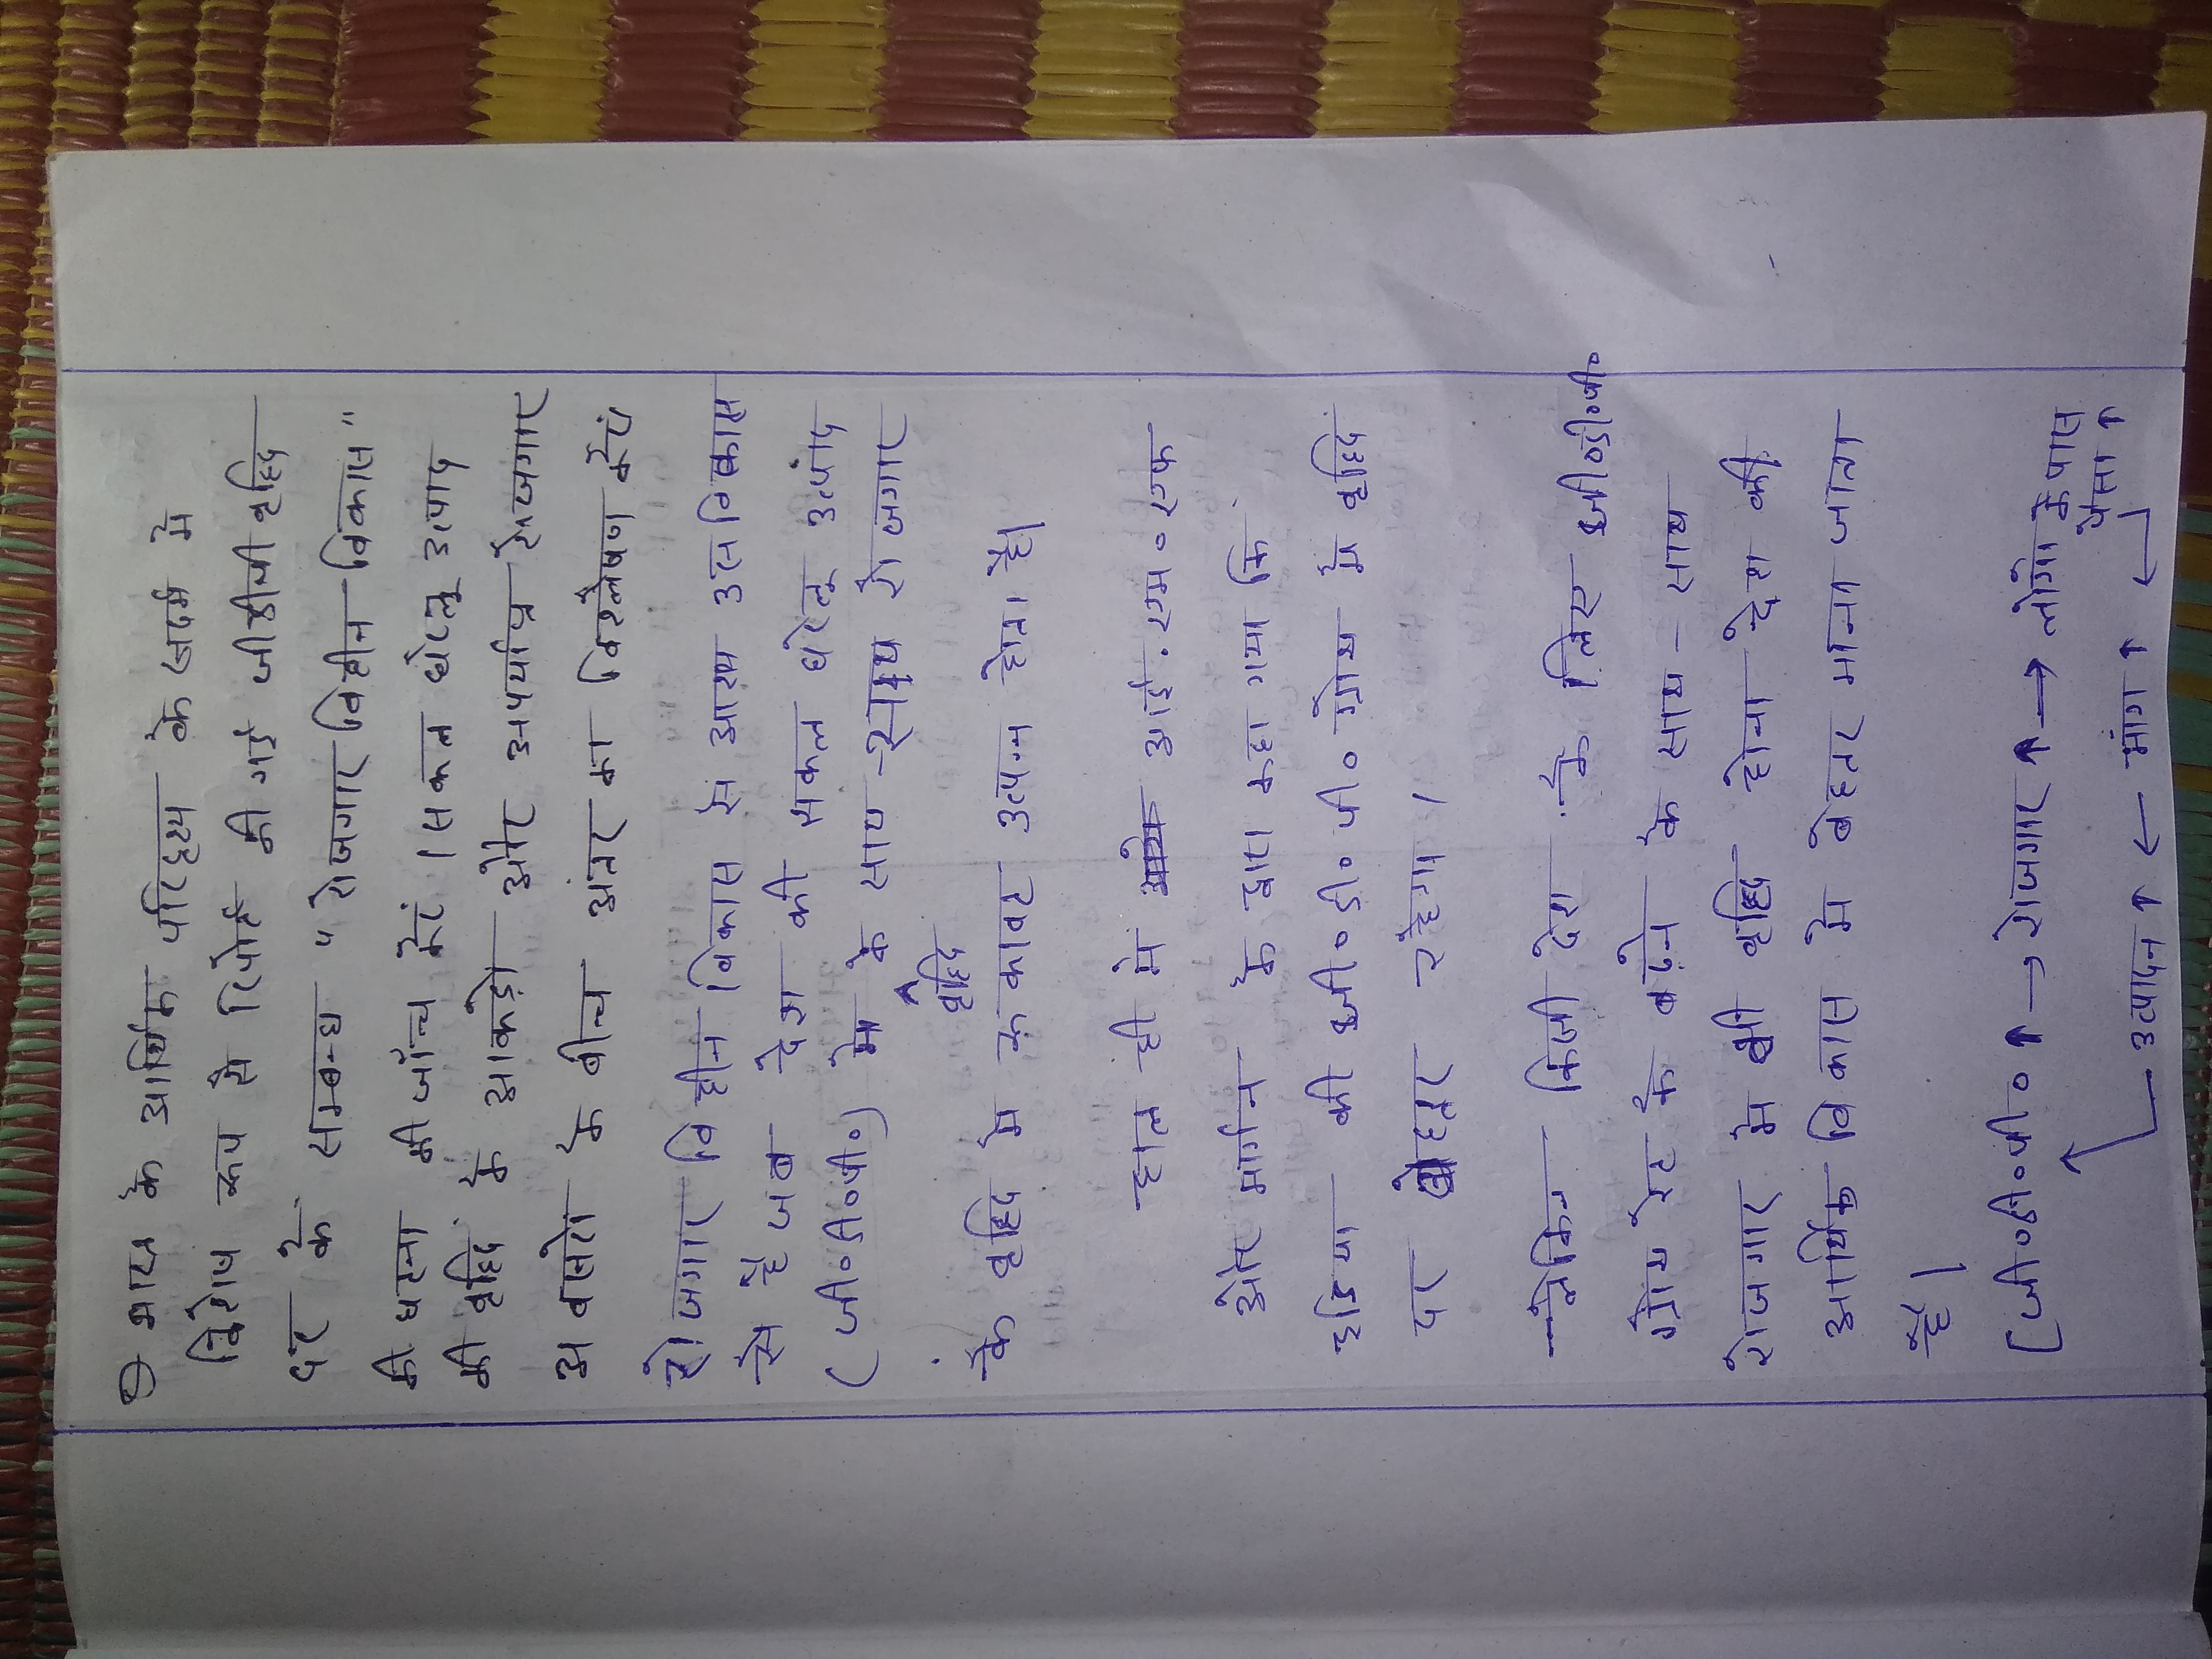 ① भारत के आर्थिक परिदृश्य के संदर्भ में
विशेष रूप से रिपोर्ट की गई जीडीपी वृद्धि
दर के सम्बन्ध " रोजगार विहीन विकास "
की घटना की जाँच करें । सकल घरेलू उत्पाद
की वृद्धि के आकड़ो और अपर्याप्त रोजगार
अवसरों के बीच अंतर का विश्लेषण करें
रोजगार विहीन विकास से आशय उस विकास
से है जब देश की सकल घरेलू उत्पाद
(जी०डी०पी०) में के साथ-साथ रोजगार
वृद्धि
के वृद्धि में रूकावट उत्पन्न होता है।
हाल ही में आई.एम०एफ
और मार्गन के द्वारा कहा गया कि
इंडिया की जी०डी०पी० ग्रोथ में वृद्धि
दर बेहतर रहेगा ।
लेकिन किसी देश के लिए जी०डी०पी०
ग्रोथ रेट के बढ़ने के साथ-साथ
रोजगार में भी वृद्धि होना देश की
आर्थिक विकास में बेहतर माना जाता
है ।
[जी०डी०पी०↑ → रोजगार↑ → लोगो के पास
पैसा↑
उत्पादन↑ ← मांग↑ ←